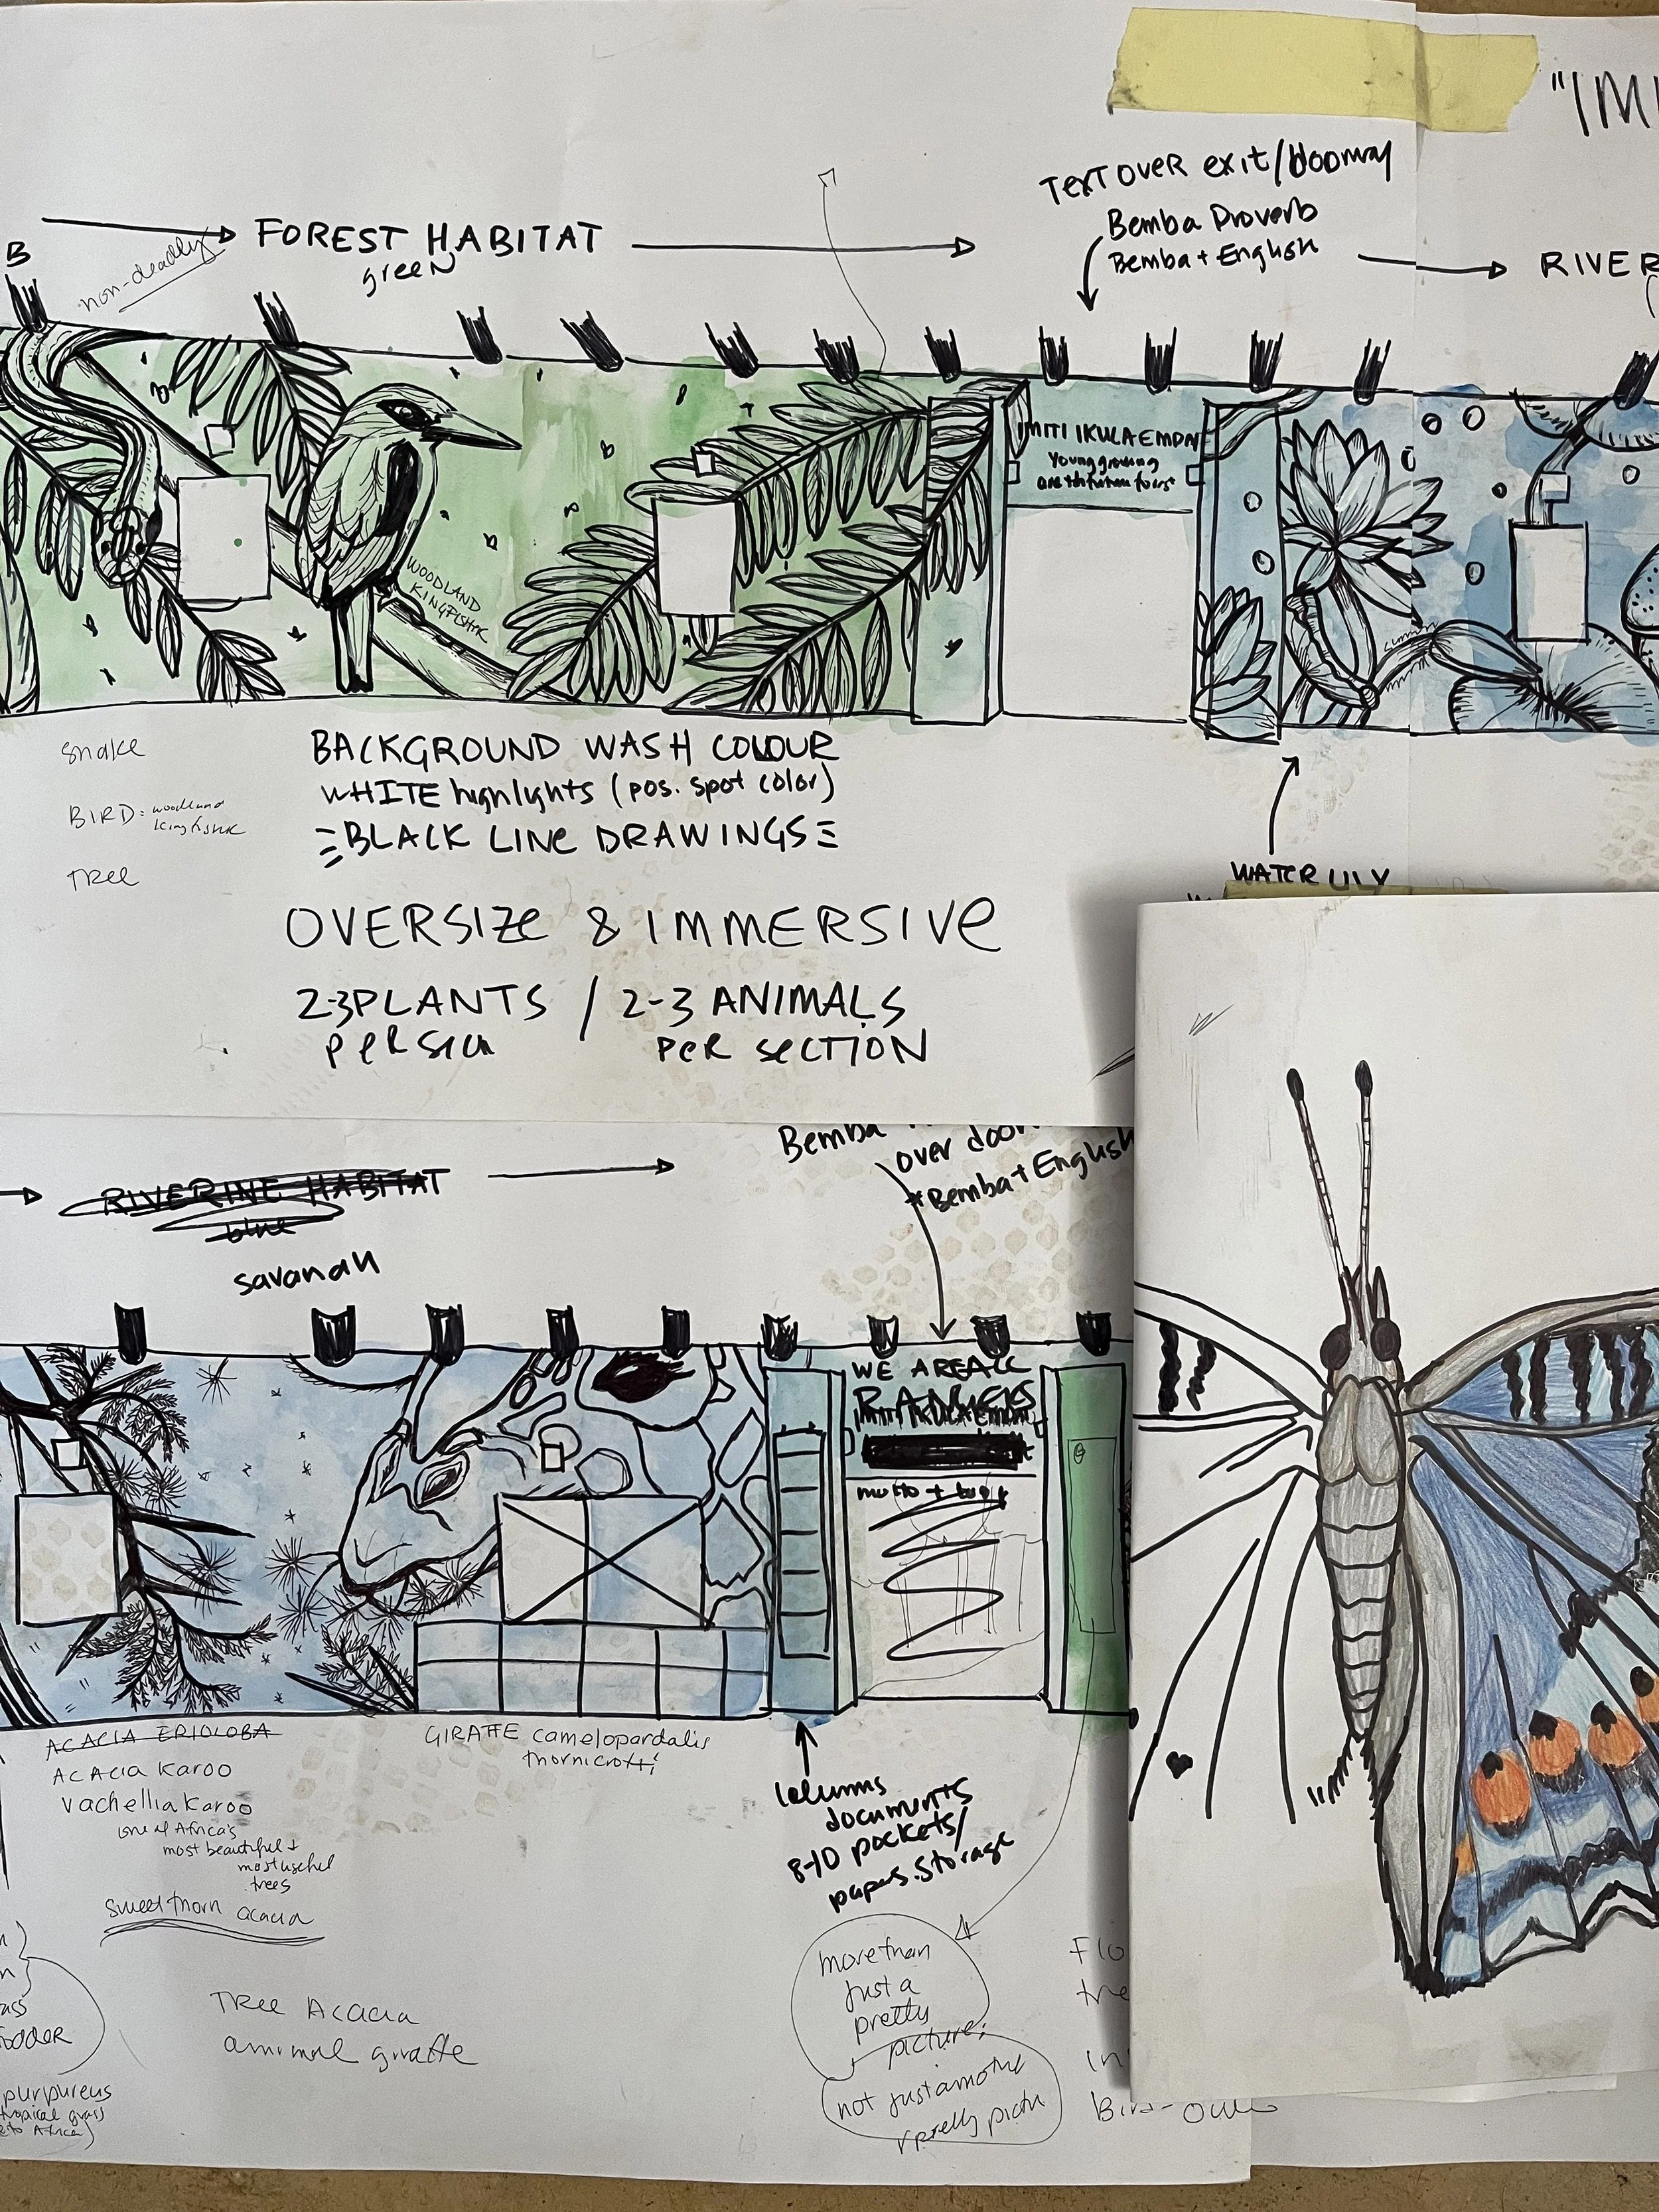 "IMI
TEXT OVER exit/doorway
Bemba Proverb
Bemba + English
B
non-deadly
FOREST HABITAT
green
RIVER
IMITI IKULA EMPA
Young growing
WOODLAND
KINGFISHER
snake
BIRD: woodland
kingfisher
TREE
BACKGROUND WASH COLOUR
WHITE highlights (pos. spot color)
BLACK LINE DRAWINGS
WATER LILY
OVERSIZE & IMMERSIVE
2-3 PLANTS / 2-3 ANIMALS
PER SECTION
Bemba
over door
*Bemba + English
RIVERINE HABITAT
blue
savanah
WE ARE ALL
RANGERS
motto +
ACACIA ERIOLOBA
ACACIA Karoo
Vachellia Karoo
one of Africa's
most beautiful +
most useful
trees
sweet thorn acacia
GIRAFFE camelopardalis
thornicrofti
columns
documents
8-10 pockets/
papers. storage
more than
just a
pretty
picture.
not just another
pretty
Flo
tre
in
Bird-
Tree Acacia
animal giraffe
ass
odder
purpureus
tropical grass
to Africa)